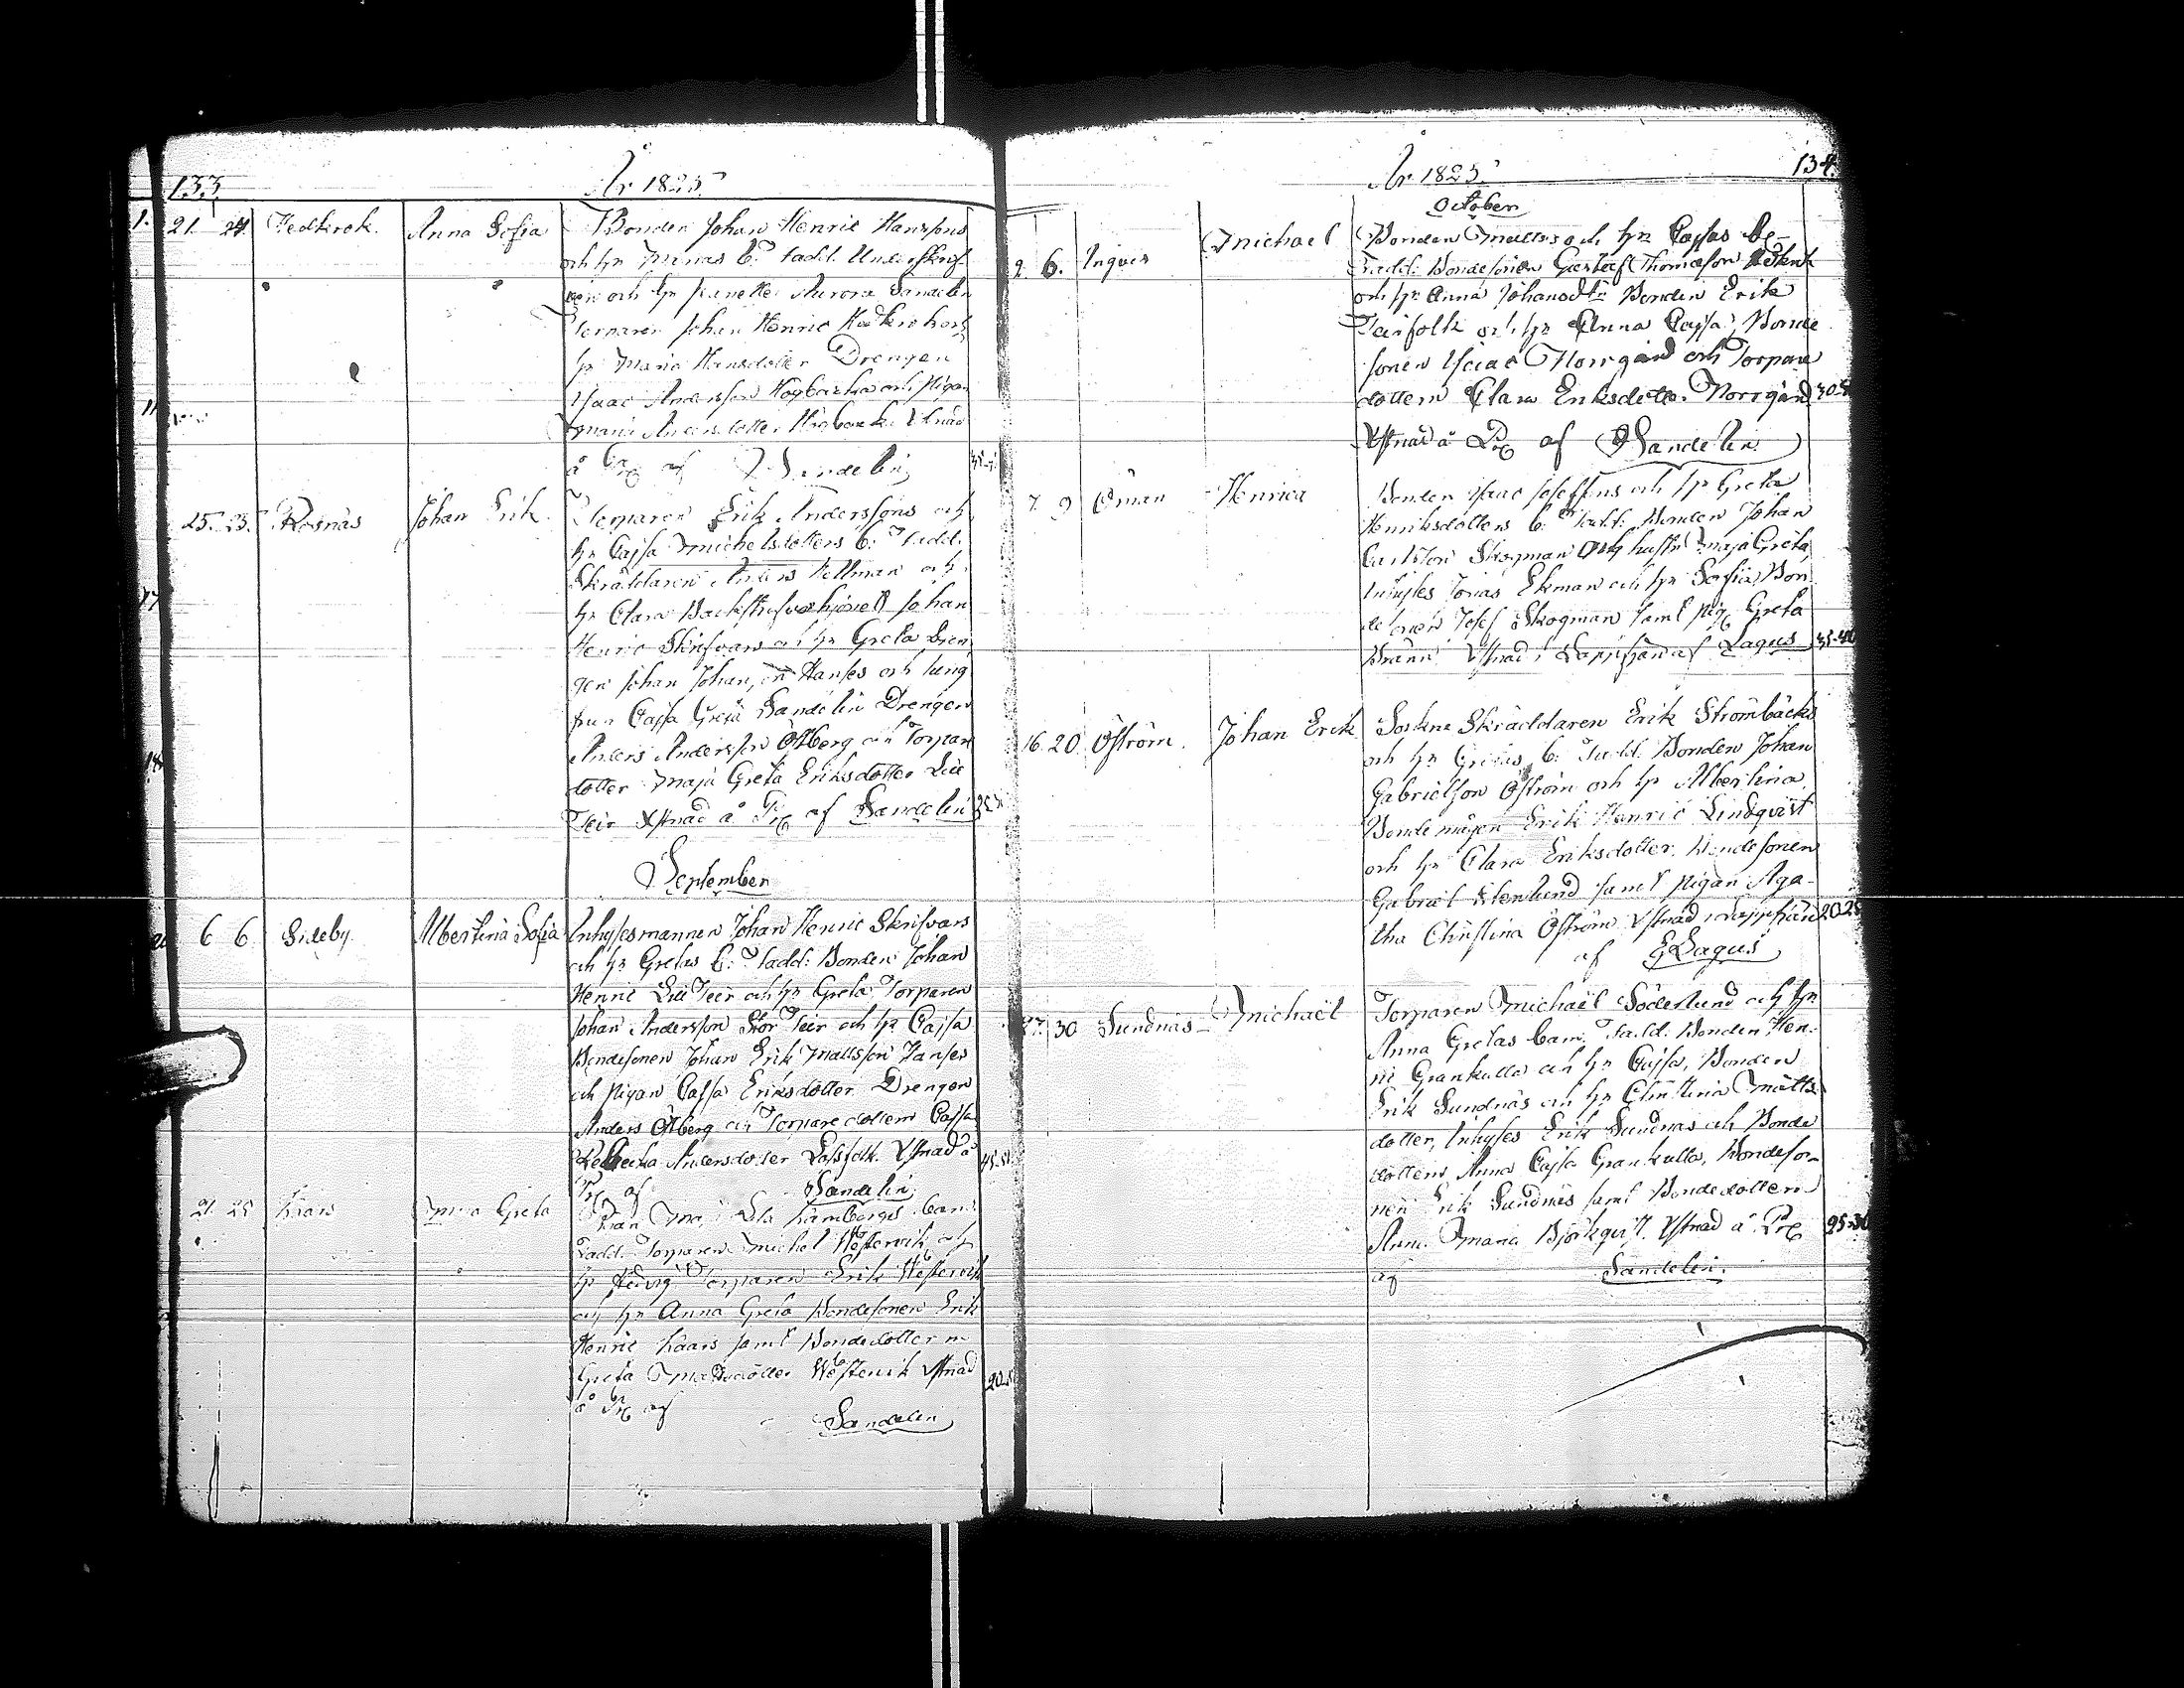 133. År 1825.
21. 24. Hedkrok. Anna Sofia Bonden Johan Henric Hanssons
och hr Marias b: Fadd. Underskrif-
ven och hr Jeanette Aurora Sandelin
Torparen Johan Henric Hedkrok och
hr Maria Hansdotter Drengen
Isaac Andersson Högbacka och pigan
Maria Andersdotter Högbacka
å af Sandelin
25. 25. Rosnäs Johan Erik. Torparen Erik Anderssons och
hr Cajsa Michelsdotters b: Fadd:
Skräddaren Anders Hellman och
hr Clara Johan
Henric Skrifvars och hr Greta Dren
gen Johan Johan, Hanses och Jung
frun Cajsa Greta Sandelin Drengen
Anders Andersson Östberg och Torpare
dotter Maja Greta Eriksdotter Lill
Teir Xstnad å af Sandelin
September
6 6 Sideby. Albertina Sofia Inhysesmannen Johan Henric Skrifvars
och hr Gretas b: Fadd: Bonden Johan
Henric Lill Teir och hr Greta Torparen
Johan Andersson Stor Teir och hr Cajsa
Bondesonen Johan Erik Mattsson Hanses
och pigan Cajsa Eriksdotter Drengen
Anders Östberg och Torparedottern Cajsa
Rebecka Andersdotter Xstnad å
af Sandelin
21. 25 Kaars Greta barn
Fadd. Torparen Michel Westervik och
hr Hedvig Torparen Erik Westervik
och hr Anna Greta Bondesonen Erik
Henric Kaars samt Bondedottern
Greta Mattsdotter Westervik Xstnad
å af
Sandelin
År 1825. 134.
October
2. 6. Ingves Michael Bonden Mattss och hr Cajsas b:
Fadd: Bondesonen Gustaf Thomasson
och hr Anna Johansdtr Bonden Erik
Teirfolk och hr Anna Cajsa, Bonde
sonen Isaac Norrgård och Torpare
dottern Clara Eriksdotter Norrgård
Xstnad å af Sandelin
7. 9 Öman Henrica Bonden Isaac Josefssons och hr Greta
Henriksdotters b: Fadd: Bonden Johan
Carlsson Skogman och hustr Maja Greta,
Inhyses Jonas Ekman och hr Sofia, Bon
desonen Josef Skogman samt pig Greta
Bränn Xstnad i Lappfjärd af Lagus 35-40
16. 20. Öström. Johan Erik Sockne Skräddaren Erik Strömbäcks
och hr Gretas b: Fadd. Bonden Johan
Gabrielsson Öström och hr Albertina
Bondemågen Erik Henric Lindqvist
och hr Clara Eriksdotter, Bondesonen
Gabriel Stenlund samt pigan Aga-
tha Christina Öström Xstnad i Lappfjärd
af Lagus
27. 30 Sundnäs Michaël Torparen Michaël Söderlund och hr
Anna Gretas barn. Fadd. Bonden Hen-
ric Grankulla och hr Cajsa, Bonden
Erik Sundnäs och hr Christina Matts
dotter, Inhyses Erik Sundnäs och Bonde
dottern Anna Cajsa Grankulla, Bondeso-
nen Erik Sundnäs samt Bondedottern
Anna Maria Björkqvist. Xstnad å
af Sandelin.